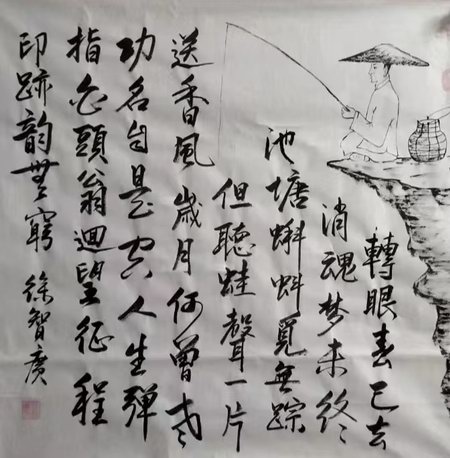 轉眼春已去
消魂梦未终
池塘蝌蚪覓無踪
但聽蛙聲一片
送香風歲月何曾老
功名自是空人生彈
指白頭翁迴望征程
印跡韵無窮 徐智廣